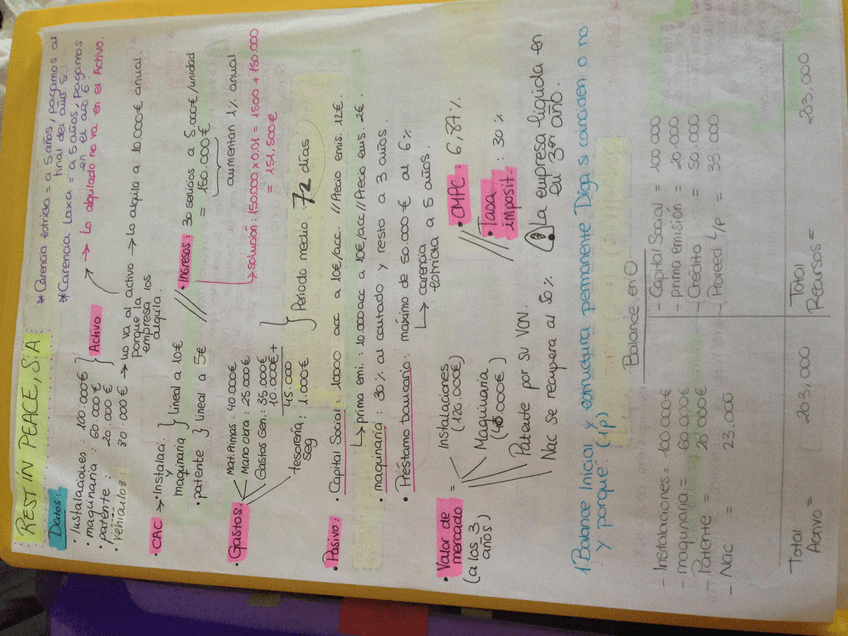 REST IN PEACE, S.A
Datos:
· Instalaciones : 100.000€
· maquinaria : 60.000€
· patente : 20.000€
· vehículos : 80.000€ → No va al activo porque la empresa los alquila. → Lo alquila a 10.000€ anual.
Activo
→ Lo alquilado no va en el Activo.
* Carencia estricta = a 5 años, pagamos al final del año 5
* Carencia Laxa = a 5 años pagamos en el año 6
· CAC → Instalac. y maquinaria } lineal a 10€
· patente } lineal a 5€
· Ingresos : 30 servicios a 5.000€/unidad = 150.000€
aumentan 1% anual
↳ solución : 150.000 x 0,01 = 1500 + 150.000 = 151,500€
· Gastos:
Mat. Primas : 40.000€
Mano obra : 25.000€
Gastos Gen : 35.000€
10.000€ +
45.000
tesorería seg : 1.000€
} Periodo medio 72 días
· Pasivo :
· Capital Social : 10000 acc a 10€/acc. // Precio emis. 12€.
↳ prima emi. : 10.000 acc a 10€/acc // Precio emis 2€.
· maquinaria : 30% al contado y resto a 3 años.
· Préstamo bancario : máximo de 50.000€ al 6%
↳ carencia estricta a 5 años.
· Valor de mercado (a los 3 años)
= Instalaciones (120.000€)
Maquinaria (40.000€)
Patente por su VCN.
Nac se recupera al 50%
· CMPC : 6,87%
· Tasa imposit. : 30%
La empresa liquida en su 3er año.
1) Balance Inicial y estructura permanente Diga si coinciden o no y porque (1p)
Balance en 0
- Instalaciones = 100.000€
- maquinaria = 60.000€
- Patente = 20.000€
- Nac = 23.000
- Capital Social = 100.000
- prima emisión = 20.000
- Crédito = 50.000
- Proveed L/p = 33.000
Total Activo = 203,000
Total Recursos = 203,000